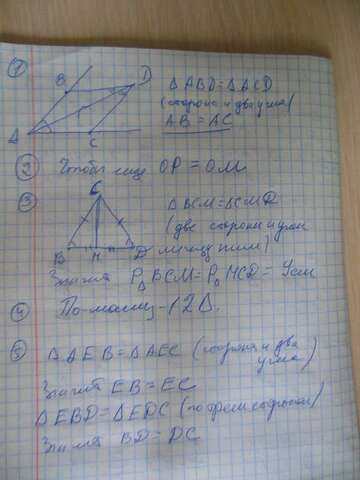 1
B D
A C
Δ ABD = Δ ACD
(сторона и два угла)
AB = AC
2 Чтобы еще OP = OM
3 C
B M D
Δ BCM = Δ CMD
(две стороны и угол
между ними)
Значит P Δ BCM = P Δ MCD = 4см
4 12 Δ.
5
Δ AEB = Δ AEC (сторона и два
угла)
Значит EB = EC
Δ EBD = Δ EDC (по трем сторонам)
Значит BD = DC